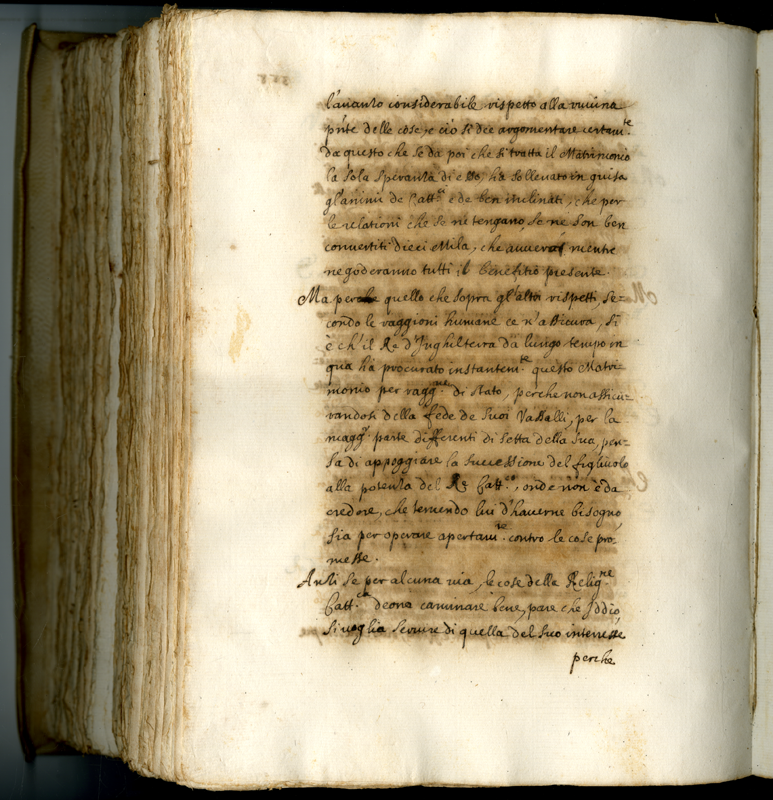 l'auanzo considerabile rispetto alla vicina
pñte delle cose, e ciò si dee argomentare certam.te
da questo che se da poi che si tratta il Matrimonio
la sola speranza di esso, ha solleuato in guisa
gl'animi de Catt.ci e de ben inclinati, che per
le relationi che se ne tengano, se ne son ben
conuertiti dieci Mila, che auuerà mentre
ne goderanno tutti il benefitio presente.
Ma perche quello che sopra gl'altri rispetti, se=
condo le raggioni humane ce n'assicura, si
è ch'il Re d'Inghilterra da lungo tempo in
qua ha procurato instantem.te questo Matri=
monio per ragg.ne di stato, perche non assicu=
randosi della fede de suoi Vassalli, per la
magg.r parte differenti di setta della sua, pen=
sa di appoggiare la successione del figliuolo
alla potenza del Re Catt.co, onde non è da
credere, che temendo lui d'hauerne bisogno,
sia per operare apertam.te contro le cose pro=
messe.
Anzi se per alcuna uia, le cose della Relig.ne
Catt.ca deono caminare bene, pare che Iddio,
si uoglia seruire di quella del suo interesse
perche